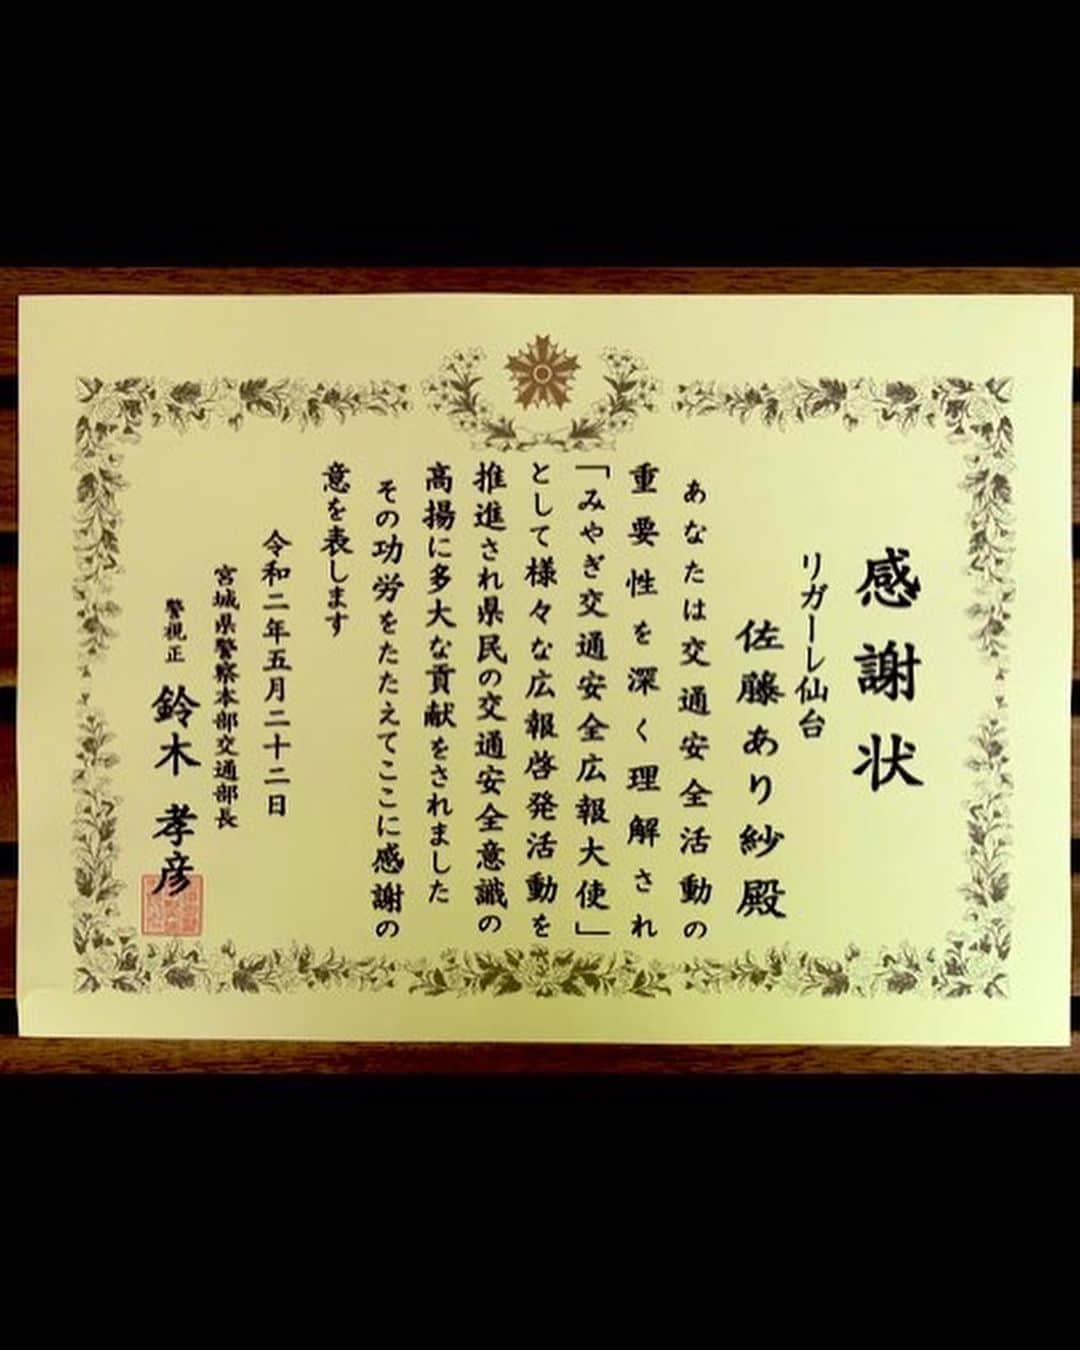 感謝状
リガーレ仙台
佐藤あり紗殿
あなたは交通安全活動の
重要性を深く理解され
「みやぎ交通安全広報大使」
として様々な広報啓発活動を
推進され県民の交通安全意識の
高揚に多大な貢献をされました
その功労をたたえてここに感謝の
意を表します
令和二年五月二十二日
宮城県警察本部交通部長
警視正 鈴木孝彦